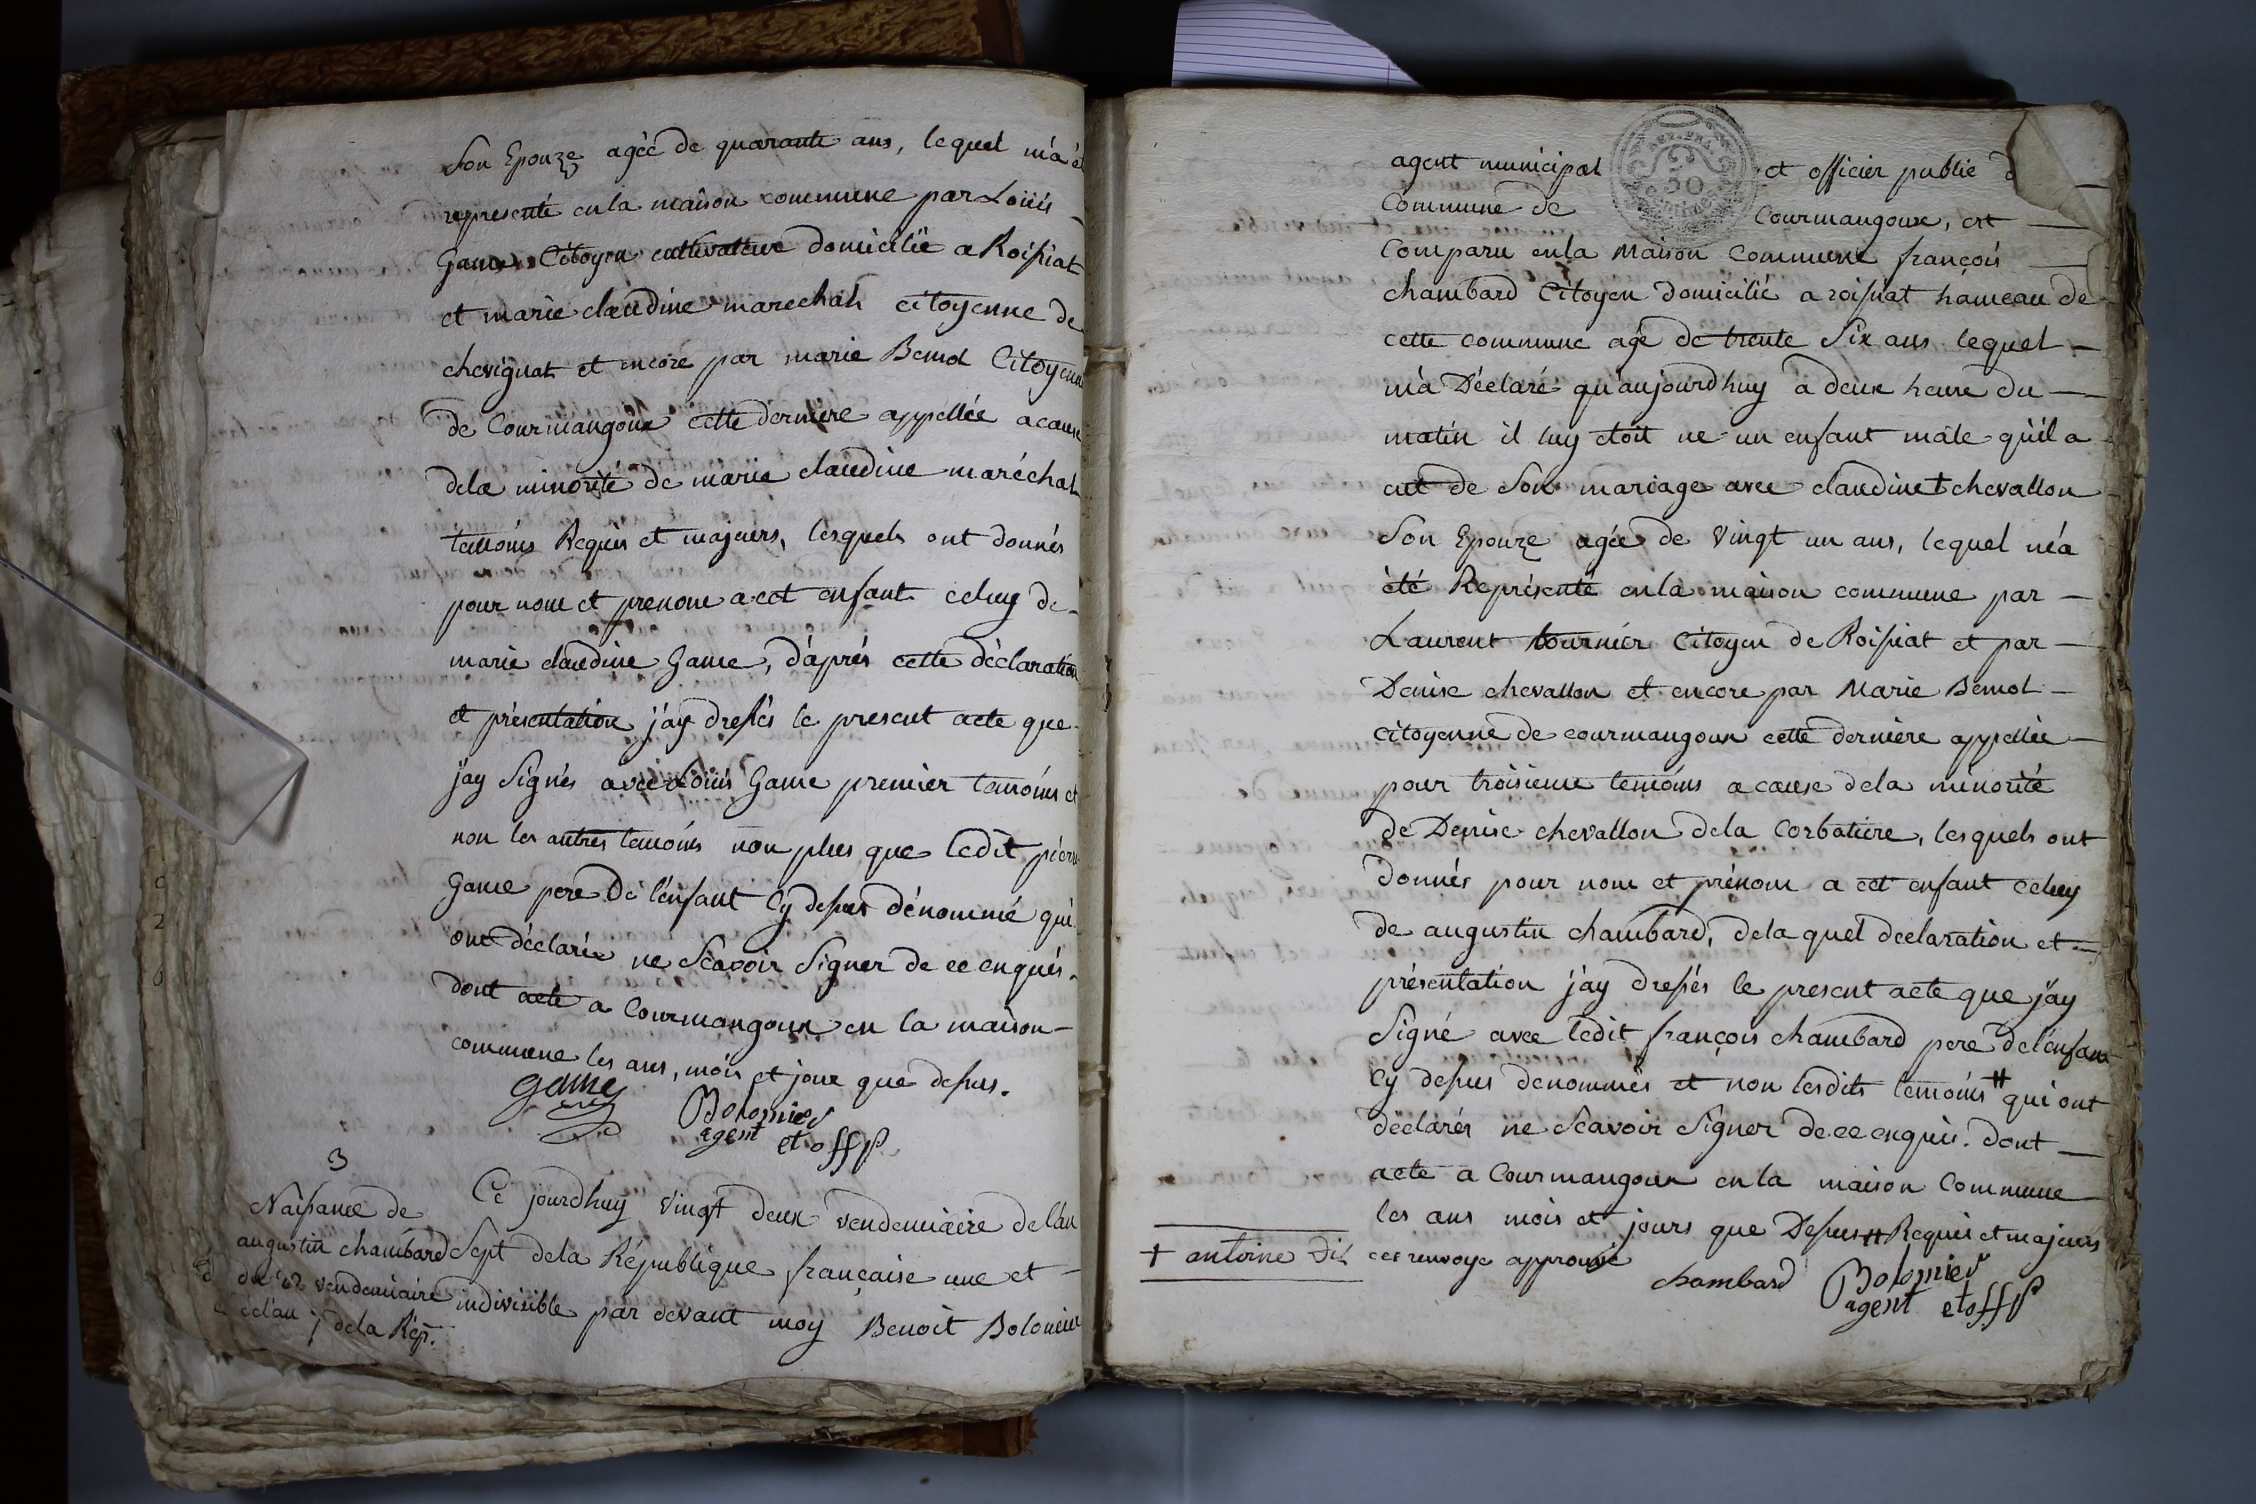 Son Epouze agée de quarante ans, lequel m'a é
représenté en la maison commune par Loüis
Game Citoyen cultivateur domicilié a Roissiat
et marie claudine marechal citoyenne de
chevignat et encore par marie Benod Citoyenne
de Courmangoux cette derniere appellée a cause
dela minorité de marie claudine maréchal
temoins Requis et majeurs, lesquels ont donnés
pour nom et prenom a cet enfant celuy de
marie claudine Game, d'aprés cette déclaration
et présentation j'ay dressés le present acte que
j'ay Signés avec Loüis Game premier temoins et
non les autres temoins non plus que ledit pierre
Game pere De l'enfant Cy dessus dénommé qui
ont déclarés ne Scavoir Signer de ce enquis.
dont acte a Courmangoux en la maison
commune les ans, mois et jour que dessus.
game
Bolomier
agent et off P
3
Naissance de
augustin chambard
du 22 vendemiaire
de l'an 7 dela Rep.
Ce jourdhuy vingt deux vendemiaire de l'an
Sept dela République française une et
indivisible par devant moy Benoit Bolomier
agent municipal et officier public d
Commune de Courmangoux, est
Comparu en la Maison Commune françois
chambard Citoyen domicilié a roissiat hameau de
cette commune agé de trente Six ans lequel
m'a Déclaré qu'aujourdhuy a deux heure du
matin il luy etoit né un enfant mâle qu'il a
eut de Son mariage avec claudine + chevallon
Son Epouze agée de vingt un ans, lequel m'a
été Représenté en la maison commune par
Laurent tournier Citoyen de Roissiat et par
Denise chevallon et encore par Marie Benod
citoyenne de courmangoux cette derniere appellée
pour troisieme temoins a cause dela minorité
de Denise chevallon dela Corbatiere, lesquels ont
donnés pour nom et prénom a cet enfant celuy
de augustin chambard, dela quel declaration et
présentation j'ay dressés le present acte que j'ay
Signé avec ledit françois chambard pere del'enfant
Cy dessus denommés et non lesdits temoins # qui ont
déclarés ne Scavoir Signer de ce enquis. Dont
acte a Courmangoux en la maison Commune
les ans mois et jours que Dessus # Requis et majeurs
+ antoine dit ces renvoye approuvé
chambard
Bolomier
agent et off P